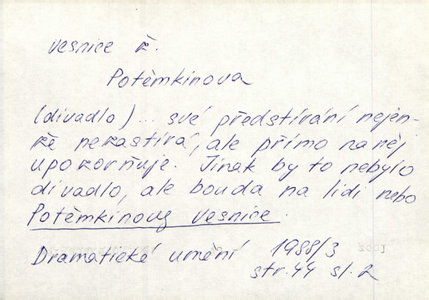 vesnice ž.
Potěmkinova
(divadlo)... své předstírání nejen-
že nezastírá, ale přímo na něj
upozorňuje. Jinak by to nebylo
divadlo, ale bouda na lidi nebo
Potěmkinovy vesnice.
Dramatické umění 1988/3
str. 44 sl. 2